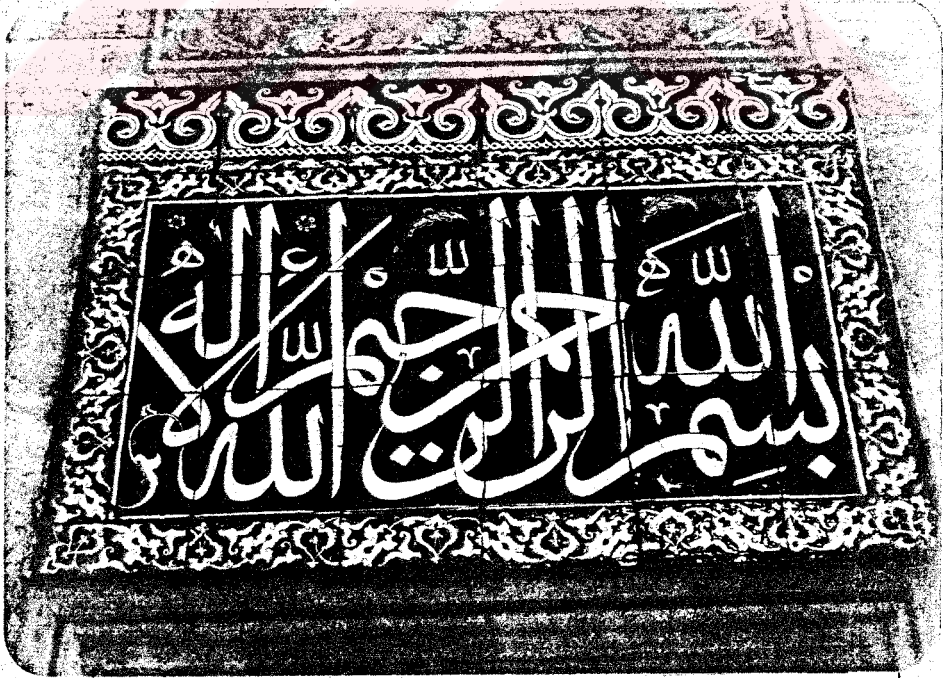 بسم الله الرحمن الرحيم الله لا اله